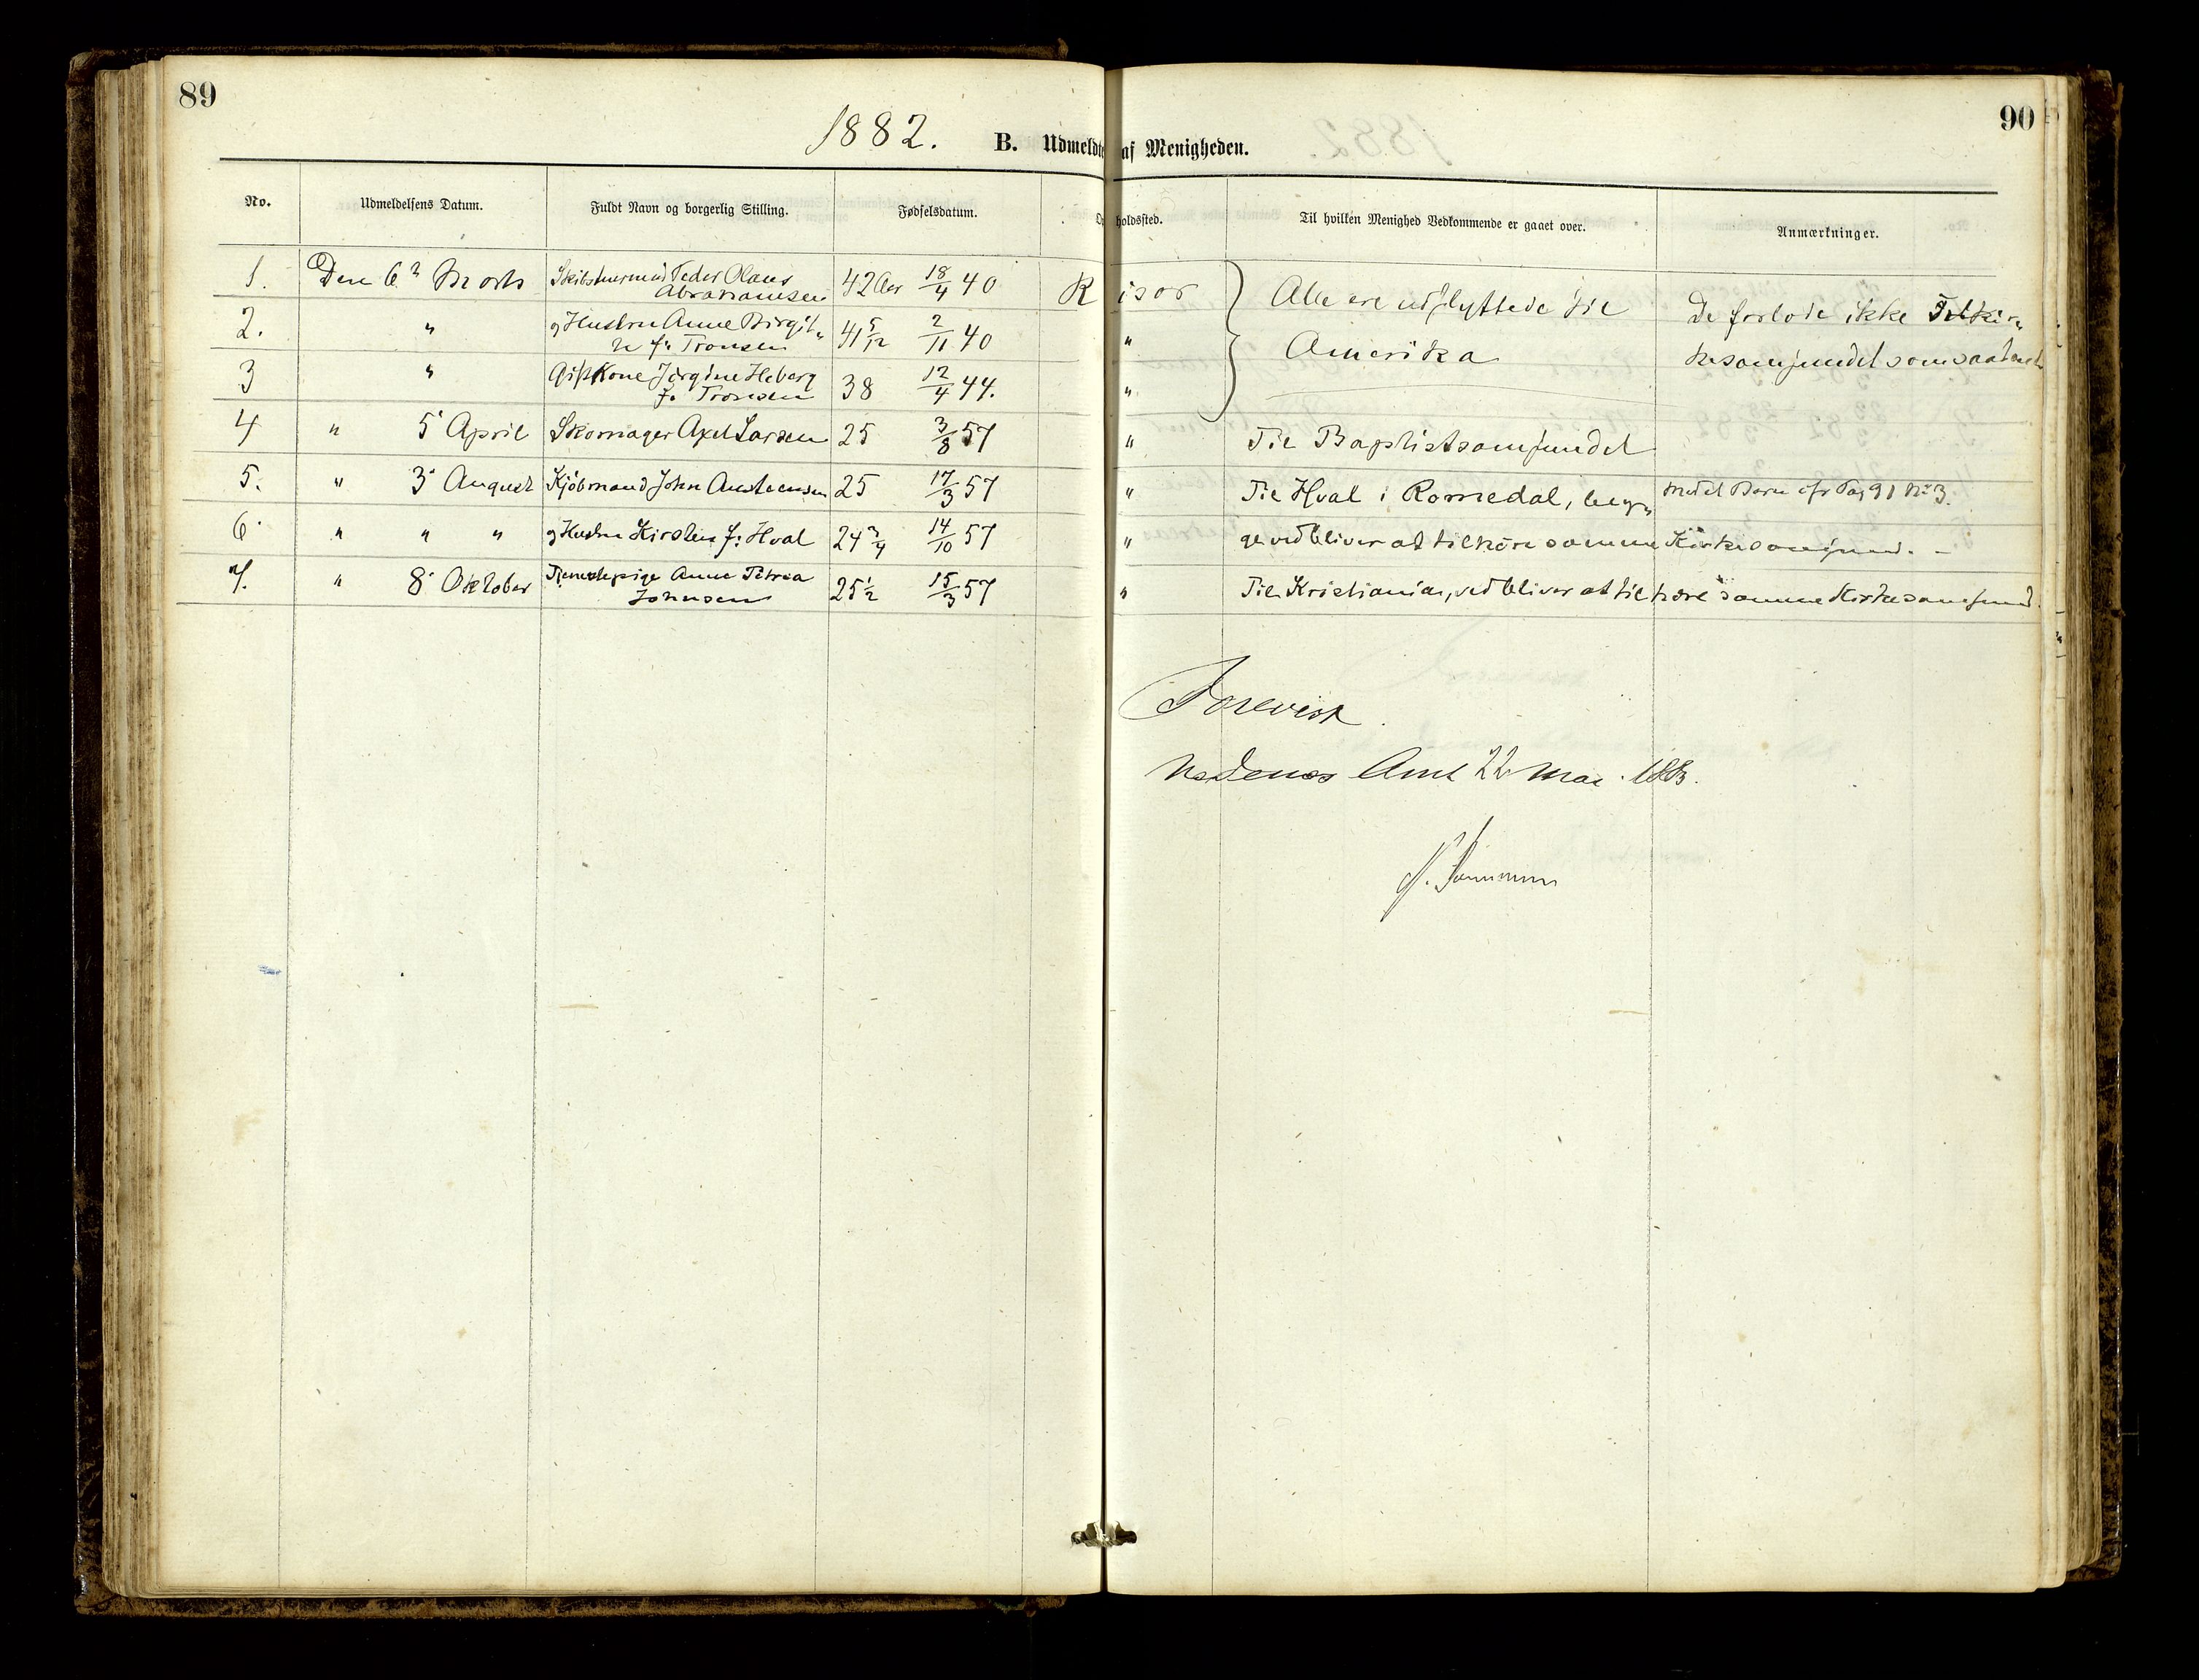 89
90
1882.
B. Udmeldte af Menigheden.
No. Udmeldelsens Datum. Fuldt Navn og borgerlig Stilling. Fødselsdatum. Opholdssted. Til hvilken Menighed Vedkommende er gaaet over. Anmærkninger.
1. Den 6 Marts Skibstuermand Peder Olaus 42 Aar 18/4 40 Risør Alle ere udflyttede til De forlode ikke Frikir„
Abrahamsen
2. " og Hustru Anne Birgit„ 41 5/12 2/11 40 " Amerika kesamfundet som saadant
te f: Tronsen
3 " Gift Kone Jørgine Heberg 38 12/4 44. "
f: Tronsen
4 " 5' April Skomager Axel Larsen 25 3/8 57 " Til Baptistsamfundet
5. " 3' August Kjøbmand John Austensen 25 17/3 57 " Til Hval i Romedal, beg„ med et Barn cfr Pag 91 No 3.
6 " " " og Hustru Kirsten f: Hval 24 3/4 14/10 57 " ge vedbliver at tilhøre samme Kirkesamfund. –
7. " 8' Oktober Tjenestepige Anne Petrea 25 1/2 15/3 57 " Til Kristiania, vedbliver at tilhøre samme Kirkesamfund.
Johnsen
Forevist.
Nedenes Amt 22 Mai 1883.